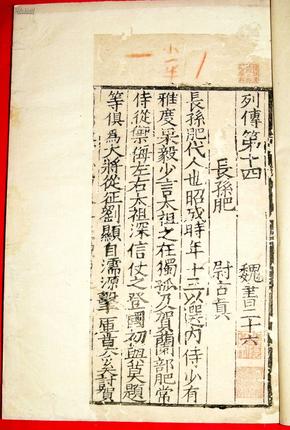 列傳第十四 魏書二十六
長孫肥 尉古真
長孫肥代人也昭成時年十三以選內侍少有
雅度果毅少言太祖之在獨孤及賀蘭部肥常
侍從禦侮左右太祖深信仗之登國初與莫題
等俱爲大將從征劉顯自濡源擊庫莫奚討賀